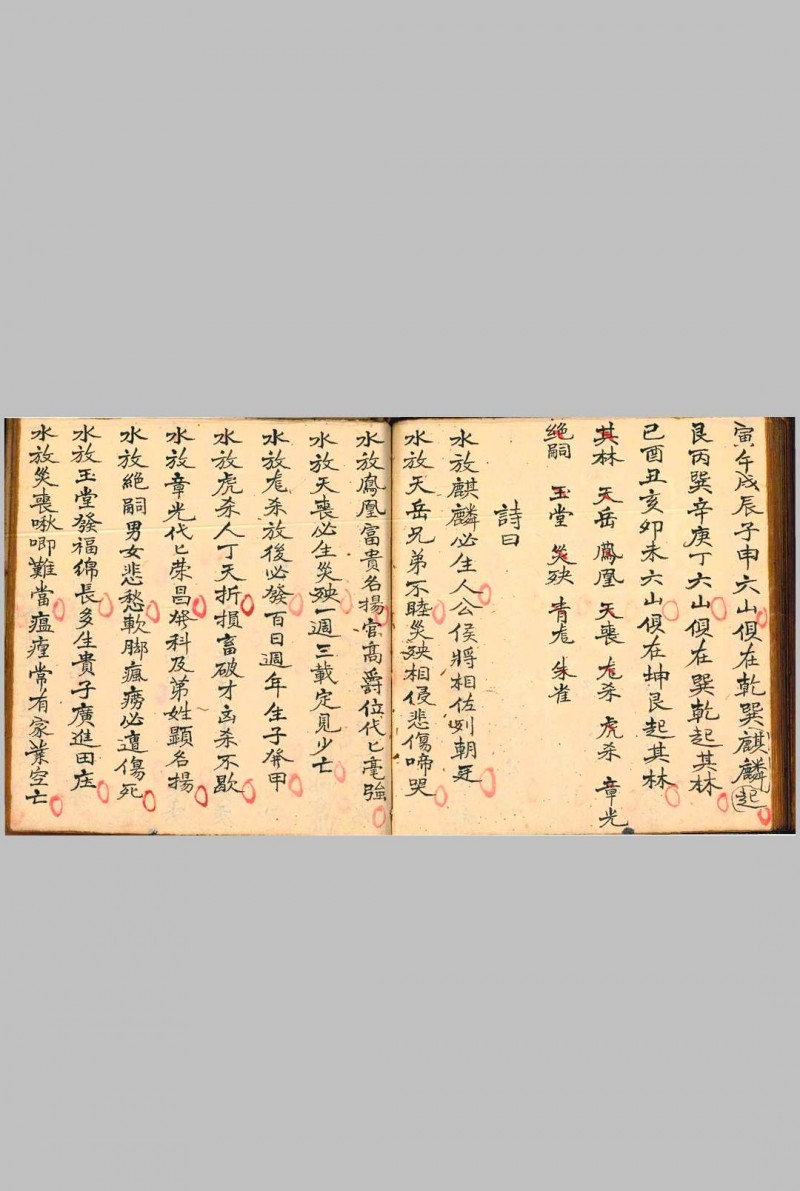 寅午戌辰子申六山俱在乾巽麒麟起
艮丙巽辛庚丁六山俱在巽乾起其林
巳酉丑亥卯未六山俱在坤艮起其林
其林 天岳 鳳凰 天喪 尨杀 虎杀 章光
絕嗣 玉堂 災殃 青尨 朱雀
詩曰
水放麒麟必生人公侯將相佐列朝廷
水放天岳兄弟不睦災殃相侵悲傷啼哭
水放鳳凰富貴名揚官高爵位代匕毫強
水放天喪必生災殃一週三載定見少亡
水放尨杀放後必發百日週年生子發甲
水放虎杀人丁夭折損畜破才凶杀不歇
水放章光代匕荣昌發科及第姓顕名揚
水放絕嗣男女悲愁軟脚瘋癆必遭傷死
水放玉堂發福綿長多生貴子廣進田庄
水放災喪啾唧難當瘟㾮常有家業空亡